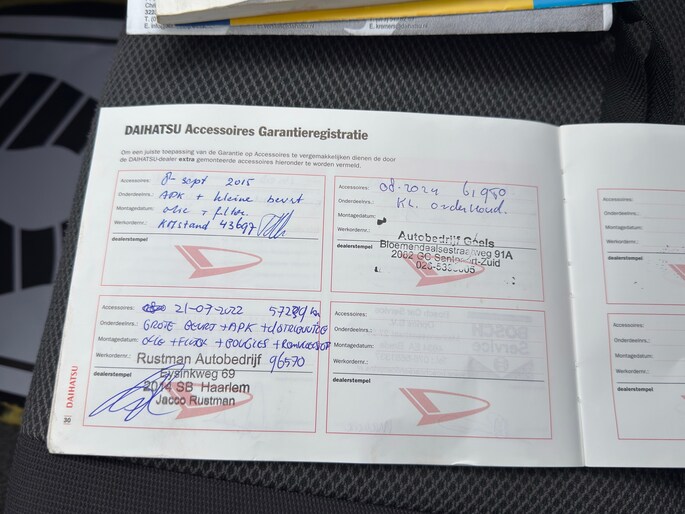 DAIHATSU Accessoires Garantieregistratie
Om een juiste toepassing van de Garantie op Accessoires te vergemakkelijken dienen de door
de DAIHATSU-dealer extra gemonteerde accessoires hieronder te worden vermeld.
Accessoires: 8- sept 2015
Onderdeelnrs.: APK + kleine beurt
Montagedatum: olie + filter
Werkordernr.: KMstand 43697
dealerstempel
Accessoires: 08-2024 61950
Onderdeelnrs.: Kl. onderhoud.
Montagedatum:
Werkordernr.:
dealerstempel
Autobedrijf
Bloemendaalsestraatweg 91A
Santpoort-Zuid
Accessoires: 21-07-2022
Onderdeelnrs.: GROTE BEURT + APK +
Montagedatum: olie + +
Werkordernr.: 96570
dealerstempel
Rustman Autobedrijf
Eysinkweg 69
2014 SB Haarlem
Jacco Rustman
Accessoires:
Onderdeelnrs.:
Montagedatum:
Werkordernr.:
dealerstempel
Accessoires:
Onderdeelnrs.:
Montagedatum:
Werkordernr.:
dealerstempel
Accessoires:
Onderdeelnrs.:
Montagedatum:
Werkordernr.:
dealerstempel
30 DAIHATSU